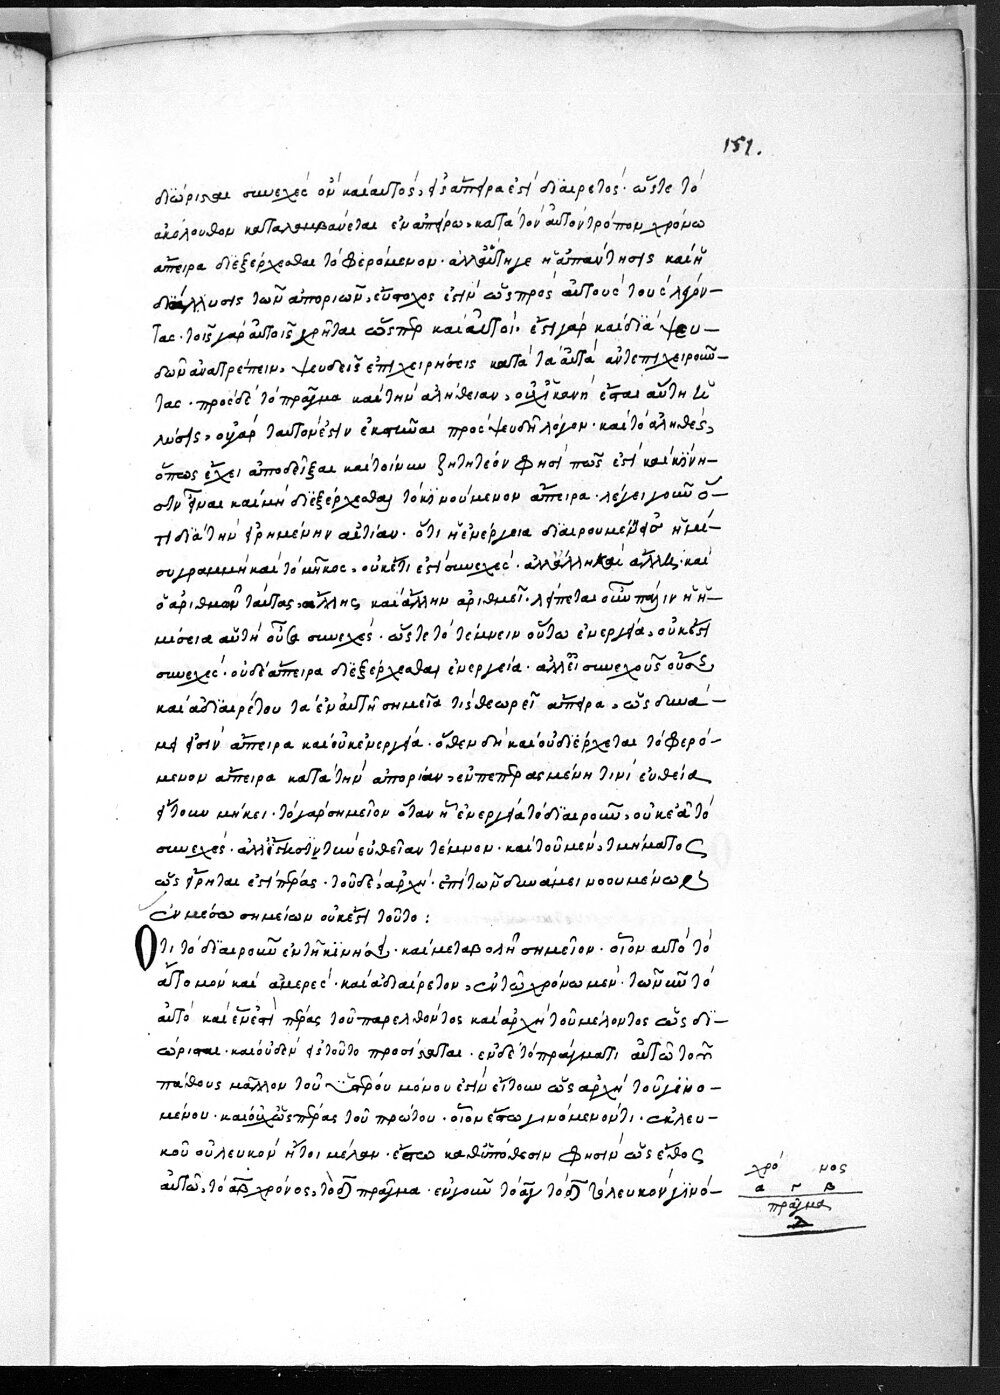 151.
διώρισται συνεχές ὂν καὶ αὐτός, εἰς ἄπειρα ἐστὶ διαιρετός· ὥστε τὸ
ἀκόλουθον καταλαμβάνεται ἐν ἀπείρω, κατὰ τὸν αὐτὸν τρόπον χρόνω
ἄπειρα διεξέρχεσθαι τὸ φερόμενον. ἀλλ' αὕτη γε ἡ ἀπάντησις καὶ ἡ
διάλυσις τῶν ἀποριῶν, εὔστοχος ἐστὶν ὡς πρὸς αὐτοὺς τοὺς λέγον-
τας. τοῖς γὰρ αὐτοῖς χρῆται ὥσπερ καὶ αὐτοί. ἔστι γὰρ καὶ διὰ ψευ-
δῶν ἀνατρέπειν, ψευδεῖς ἐπιχειρήσεις κατὰ τὰ αὐτὰ ἀντεπιχειροῦν-
τας. πρὸς δὲ τὸ πρᾶγμα καὶ τὴν ἀλήθειαν, οὐχ ἱκανὴ ἔσται αὕτη ἡ
λύσις, οὐ γὰρ ταυτόν ἐστιν ἐνστῆναι πρὸς ψευδῆ λόγον. καὶ τὸ ἀληθὲς,
ὅπως ἔχει ἀποδεῖξαι καὶ τοίνυν ζητητέον φησὶ πῶς ἐστὶ καὶ κίνη-
σιν εἶναι καὶ μὴ διεξέρχεσθαι τὸ κινούμενον ἄπειρα. λέγει γοῦν ὅ-
τι διὰ τὴν εἰρημένην αἰτίαν. ὅτι ἡ ἐνέργεια διαιρουμένη
συγραμμὴ καὶ τὸ μῆκος, οὐκέτι ἐστὶ συνεχές. ἀλλ' ἄλλη καὶ ἄλλη. καὶ
ὁ ἀριθμῶν ταύτας, ἄλλης καὶ ἄλλην ἀριθμεῖ. λείπεται οὖν πάλιν ἡ ἡ-
μίσεια αὐτὴ οὖσα συνεχές. ὥστε τὸ τέμνειν οὕτω ἐνεργεία, οὐκέτι
συνεχές. οὐδὲ ἄπειρα διεξέρχεσθαι ἐνεργεία. ἀλλ' εἰ συνεχοῦς οὔσης
καὶ ἀδιαιρέτου τὰ ἐν αὐτῇ σημεῖα τὶς θεωρεῖ ἄπειρα, ὡς δυνά-
μει εἰσὶν ἄπειρα καὶ οὐκ ἐνεργεία. ὅθεν δὴ καὶ οὐ διέρχεται τὸ φερό-
μενον ἄπειρα κατὰ τὴν ἀπορίαν, ἐν πεπερασμένη τινὶ εὐθεία
ἤτουν μήκει. τὸ γὰρ σημεῖον ὅταν ᾖ ἐνεργεία τὸ διαιροῦν, οὐκ ἐᾶ τὸ
συνεχές. ἀλλ' ἔστι τὴν εὐθεῖαν τέμνον. καὶ τοῦ μὲν, τμήματος
ὡς εἴρηται ἐστὶ πέρας. τοῦ δὲ, ἀρχή. ἐπὶ τῶν δυνάμει νοουμένων
ἐν μέσω σημείων οὐκ ἔστι τοῦτο:
Ὅτι τὸ διαιροῦν ἐν τῇ κινήσει. καὶ μεταβολῇ σημεῖον. οἷον αὐτὸ τὸ
ἄτομον καὶ ἀμερές. καὶ ἀδιαίρετον, ἐν τῷ χρόνω μὲν. τῶ νῦν τὸ
αὐτὸ καὶ ἕν ἐστὶ πέρας τοῦ παρελθόντος καὶ ἀρχὴ τοῦ μέλοντος ὡς δι-
ώρισται. καὶ οὐδὲν εἰς τοῦτο προσίσταται. ἐν δὲ τῷ πράγματι αὐτῷ τοῦ
πάθους μᾶλλον τοῦ ὑστέρου μόνου ἐστὶν ἤτουν ὡς ἀρχὴ τοῦ γενο-
μένου. καὶ οὐχ ὡς πέρας τοῦ πρώτου. οἷον ἔστω γινόμενόν τι. ἐκ λευ-
κοῦ οὐ λευκὸν ἤτοι μέλαν. ἔστω καθ' ὑπόθεσιν φησὶν ὡς ἔθος
αὐτῷ, τὸ ΑΒ χρόνος, τὸ Δ πρᾶγμα. ἐν γοῦν τῷ ΑΓ τὸ Δ λευκὸν γινό-
χρό νος
α Γ Β
πρᾶγμα
Δ